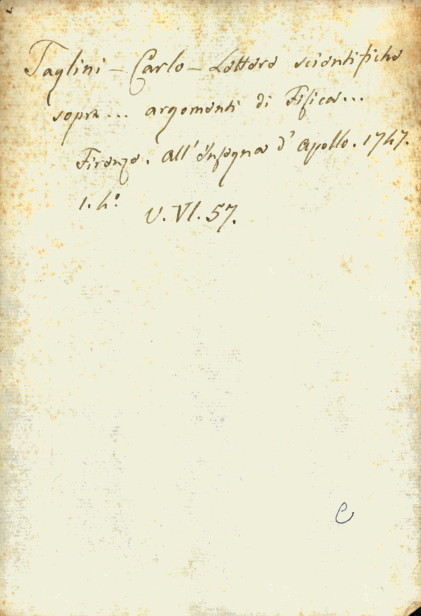 Taglini – Carlo – Lettere scientifiche
sopra... argomenti di Fisica...
Firenze. all'insegna d'Apollo. 1747.
1. 4.º
V. VI. 57.
e